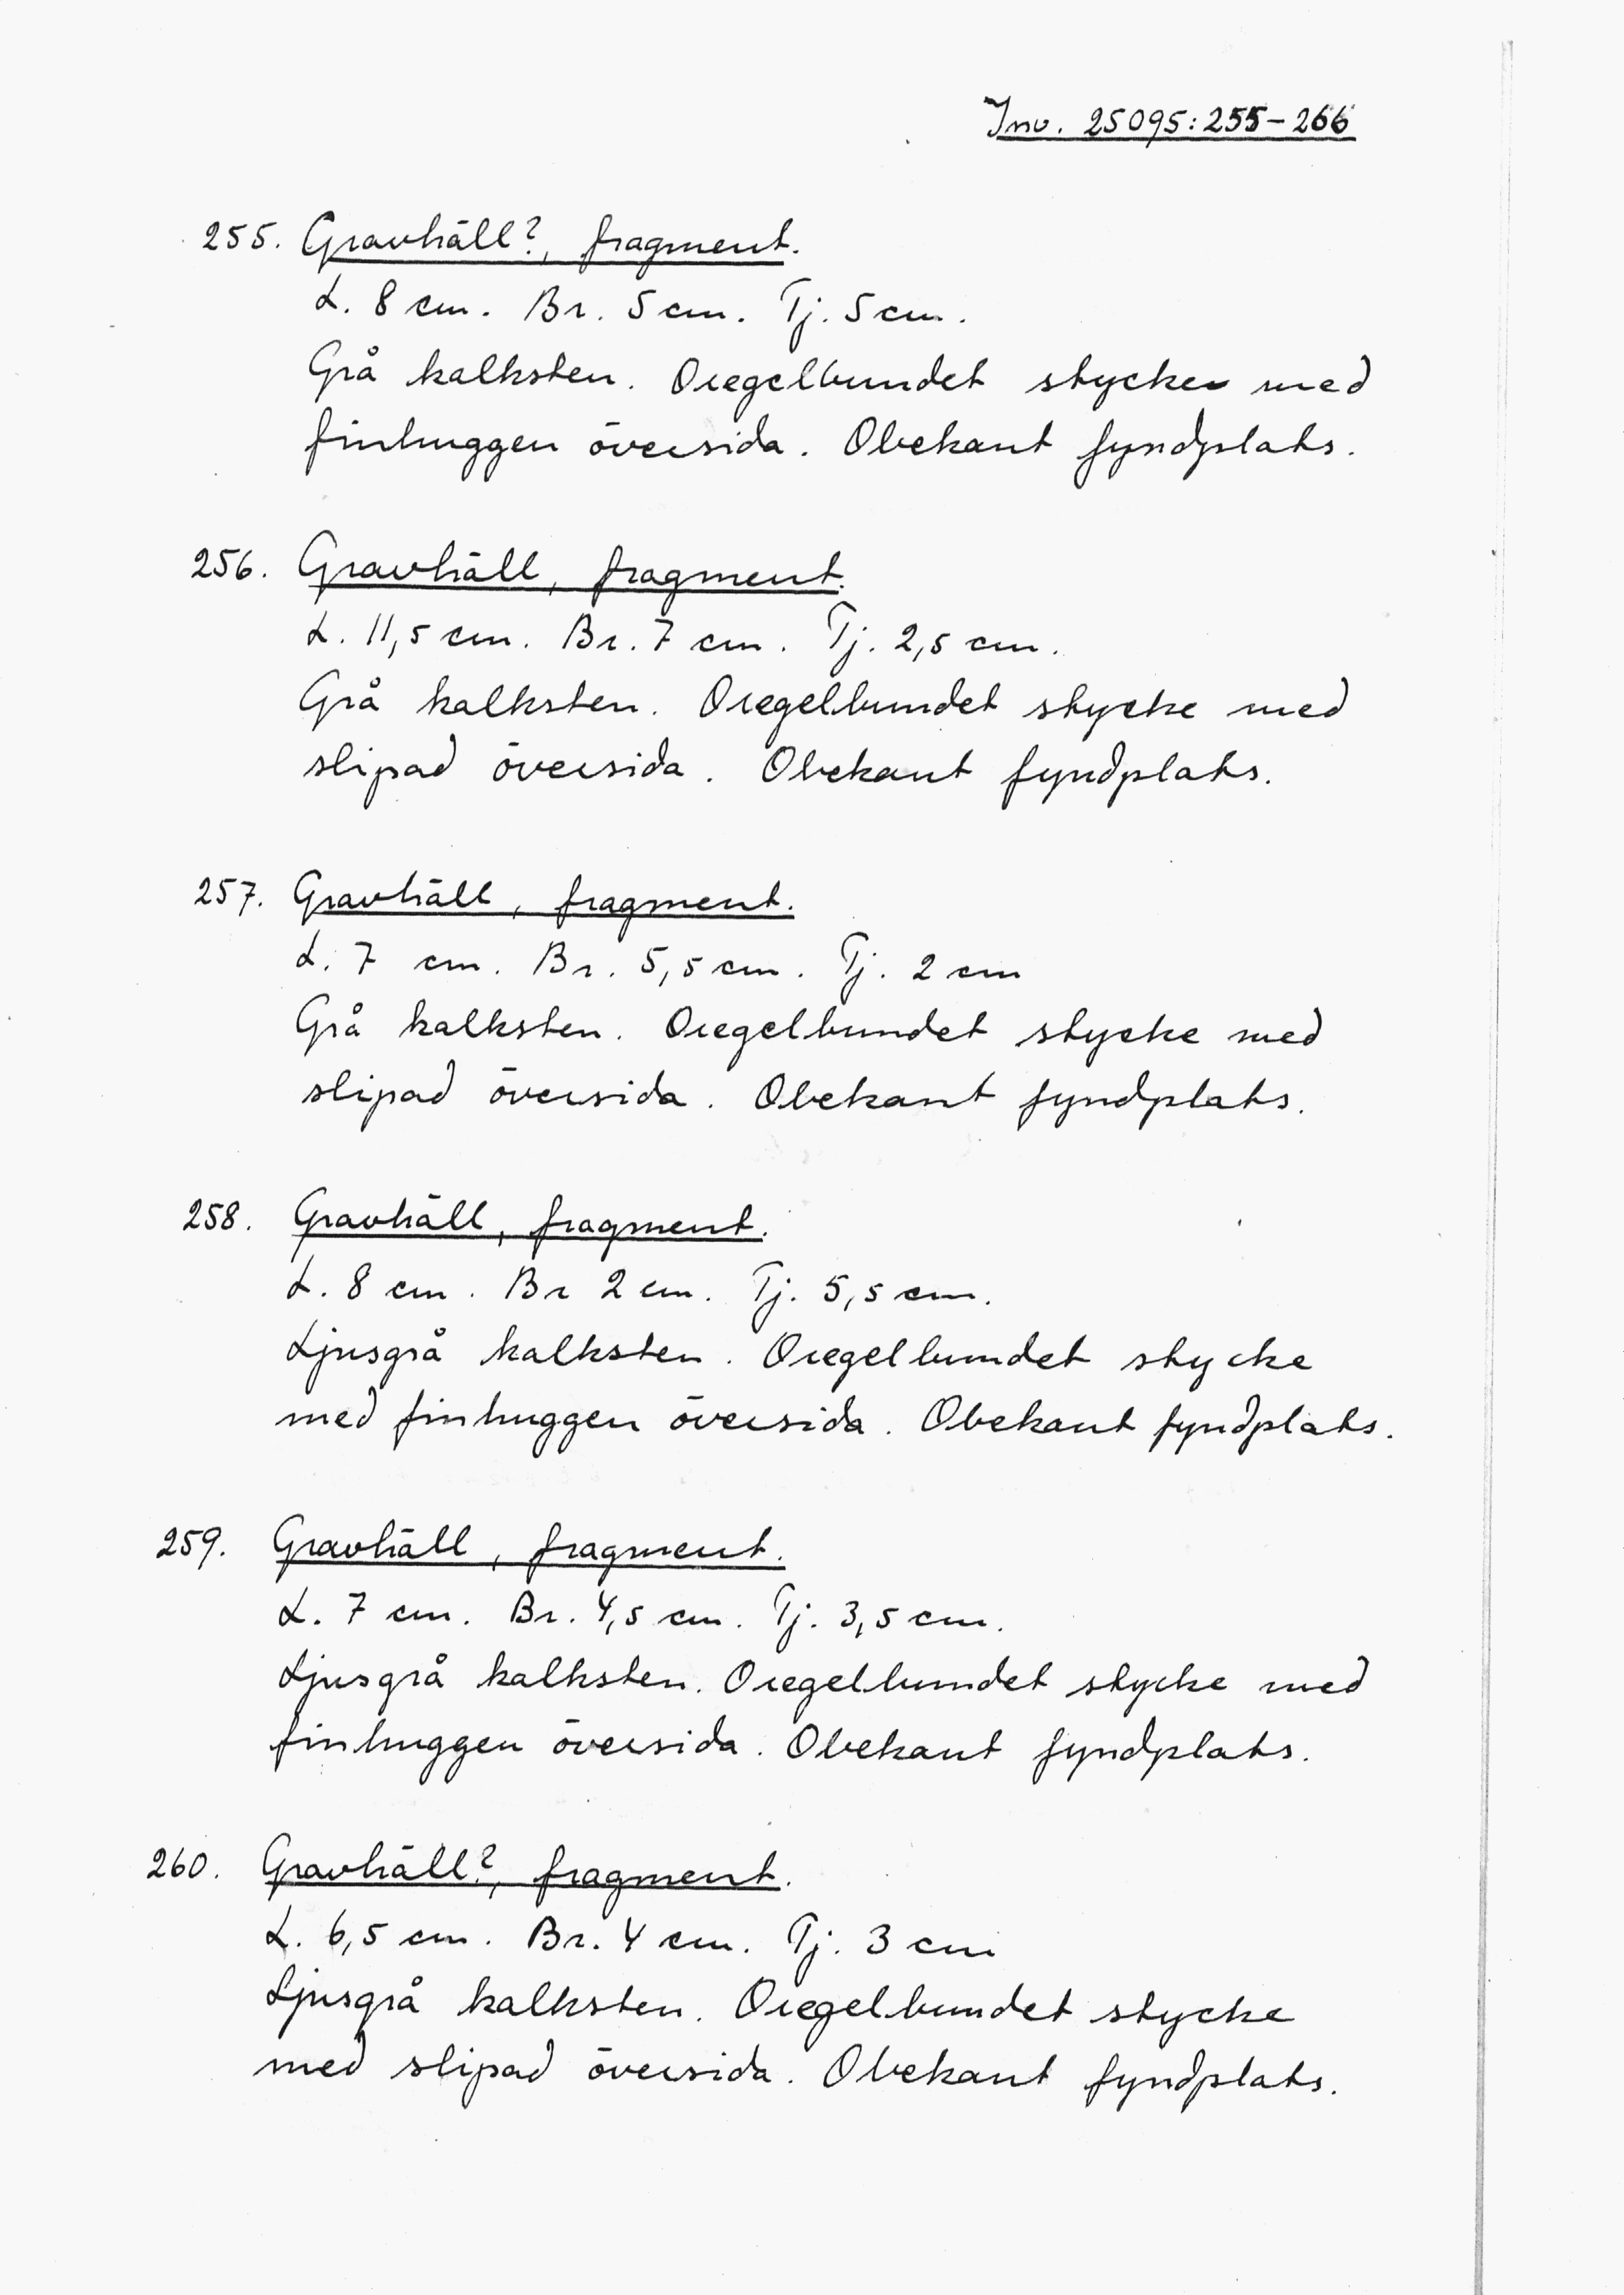 Inv. 25095:255-266
255. Gravhäll?, fragment.
L. 8 cm. Br. 5 cm. Tj. 5 cm.
Grå kalksten. Oregelbundet stycke med
finhuggen översida. Obekant fyndplats.
256. Gravhäll, fragment.
L. 11,5 cm. Br. 7 cm. Tj. 2,5 cm.
Grå kalksten. Oregelbundet stycke med
slipad översida. Obekant fyndplats.
257. Gravhäll, fragment.
L. 7 cm. Br. 5,5 cm. Tj. 2 cm
Grå kalksten. Oregelbundet stycke med
slipad översida. Obekant fyndplats.
258. Gravhäll, fragment.
L. 8 cm. Br 2 cm. Tj. 5,5 cm.
Ljusgrå kalksten. Oregelbundet stycke
med finhuggen översida. Obekant fyndplats.
259. Gravhäll, fragment.
L. 7 cm. Br. 4,5 cm. Tj. 3,5 cm.
Ljusgrå kalksten. Oregelbundet stycke med
finhuggen översida. Obekant fyndplats.
260. Gravhäll?, fragment.
L. 6,5 cm. Br. 4 cm. Tj. 3 cm
Ljusgrå kalksten. Oregelbundet stycke
med slipad översida. Obekant fyndplats.